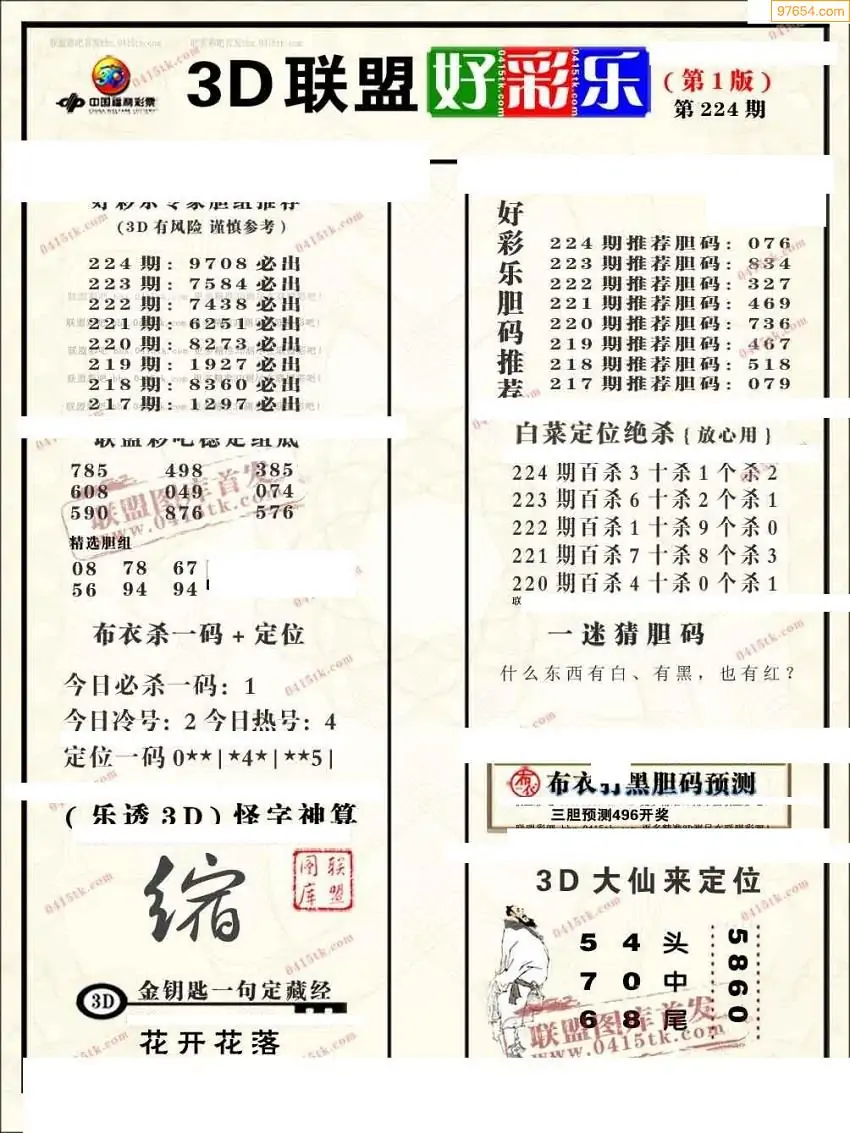 97654.com
3D联盟好彩乐
0415tk.com
0415tk.com
0415tk.com
(第1版)
第224期
中国福利彩票
CHINA WELFARE LOTTERY
好彩乐专家胆组推荐
(3D有风险 谨慎参考)
224期: 9708必出
223期: 7584必出
222期: 7438必出
221期: 6251必出
220期: 8273必出
219期: 1927必出
218期: 8360必出
217期: 1297必出
联盟彩吧稳定组底
785 498 385
608 049 074
590 876 576
联盟图库首发
www.0415tk.com
精选胆组
08 78 67
56 94 94
布衣杀一码+定位
今日必杀一码: 1
今日冷号: 2 今日热号: 4
定位一码 0**|*4*|**5|
(乐透3D)怪字神算
缩
联盟图库
3D
金钥匙一句定藏经
花开花落
好彩乐胆码推荐
224期推荐胆码: 076
223期推荐胆码: 834
222期推荐胆码: 327
221期推荐胆码: 469
220期推荐胆码: 736
219期推荐胆码: 467
218期推荐胆码: 518
217期推荐胆码: 079
白菜定位绝杀{放心用}
224期百杀3十杀1个杀2
223期百杀6十杀2个杀1
222期百杀1十杀9个杀0
221期百杀7十杀8个杀3
220期百杀4十杀0个杀1
联
一迷猜胆码
什么东西有白、有黑，也有红?
布衣
布衣打黑胆码预测
三胆预测496开奖
3D大仙来定位
5 4 头
7 0 中
6 8 尾
5860
联盟图库首发
www.0415tk.com